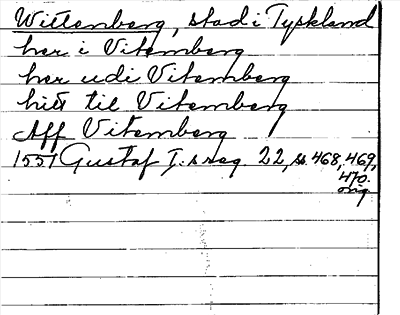 Wittenberg, stad i Tyskland
her i Vitemberg
her udi Vitemberg
hiit til Vitemberg
Aff Vitemberg
1551 Gustaf I:s reg. 22, ss. 468, 469,
470.
orig